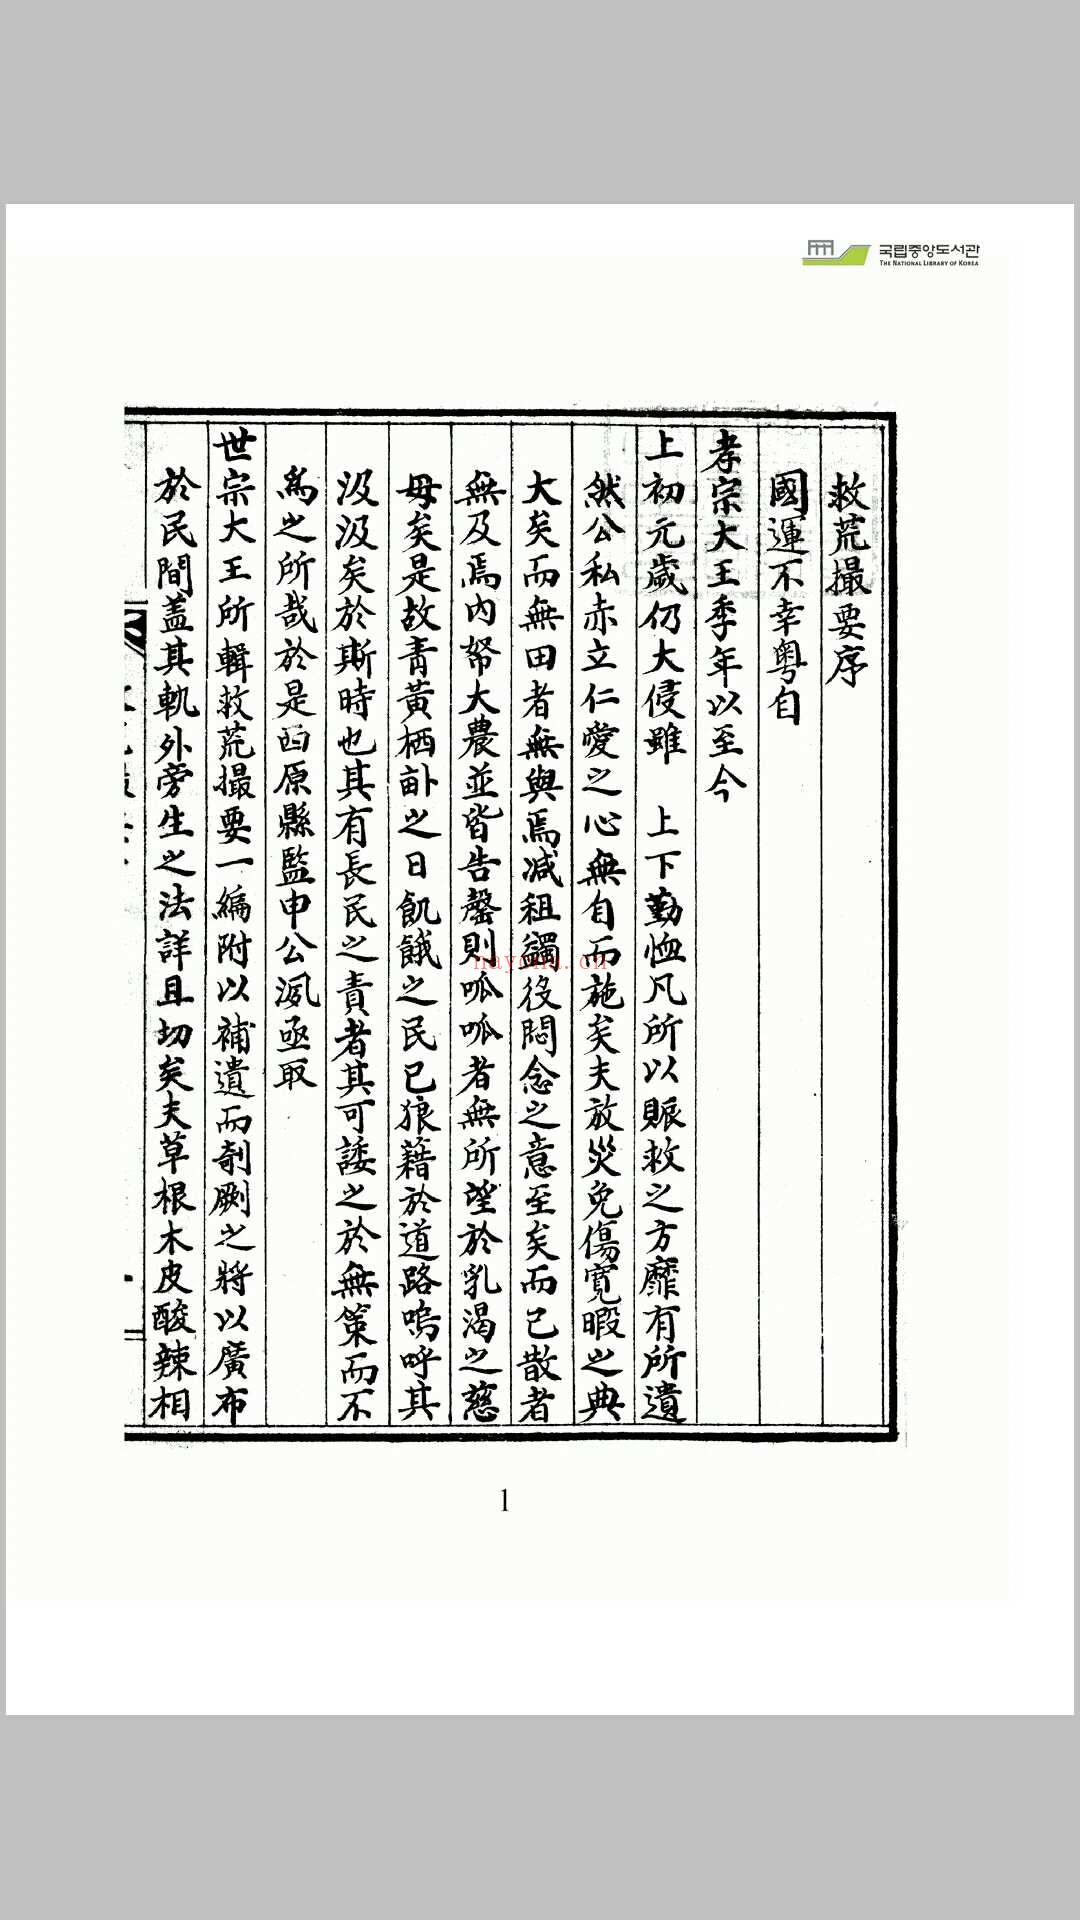 국립중앙도서관
THE NATIONAL LIBRARY OF KOREA
救荒撮要序
國運不幸粤自
孝宗大王季年以至今
上初元歲仍大侵雖 上下勤恤凡所以賑救之方靡有所遺
然公私赤立仁愛之心無自而施矣夫放災免傷寬暇之典
大矣而無田者無與焉减租蠲役悶念之意至矣而已散者
無及焉內帑大農並皆告罄則呱呱者無所望於乳渴之慈
母矣是故靑黃栖畝之日飢餓之民已狼藉於道路嗚呼其
汲汲矣於斯時也其有長民之責者其可諉之於無策而不
爲之所哉於是西原縣監申公洬亟取
世宗大王所輯救荒撮要一編附以補遺而剞劂之將以廣布
於民間盖其軌外旁生之法詳且切矣夫草根木皮酸辣相
nayona.cn
1